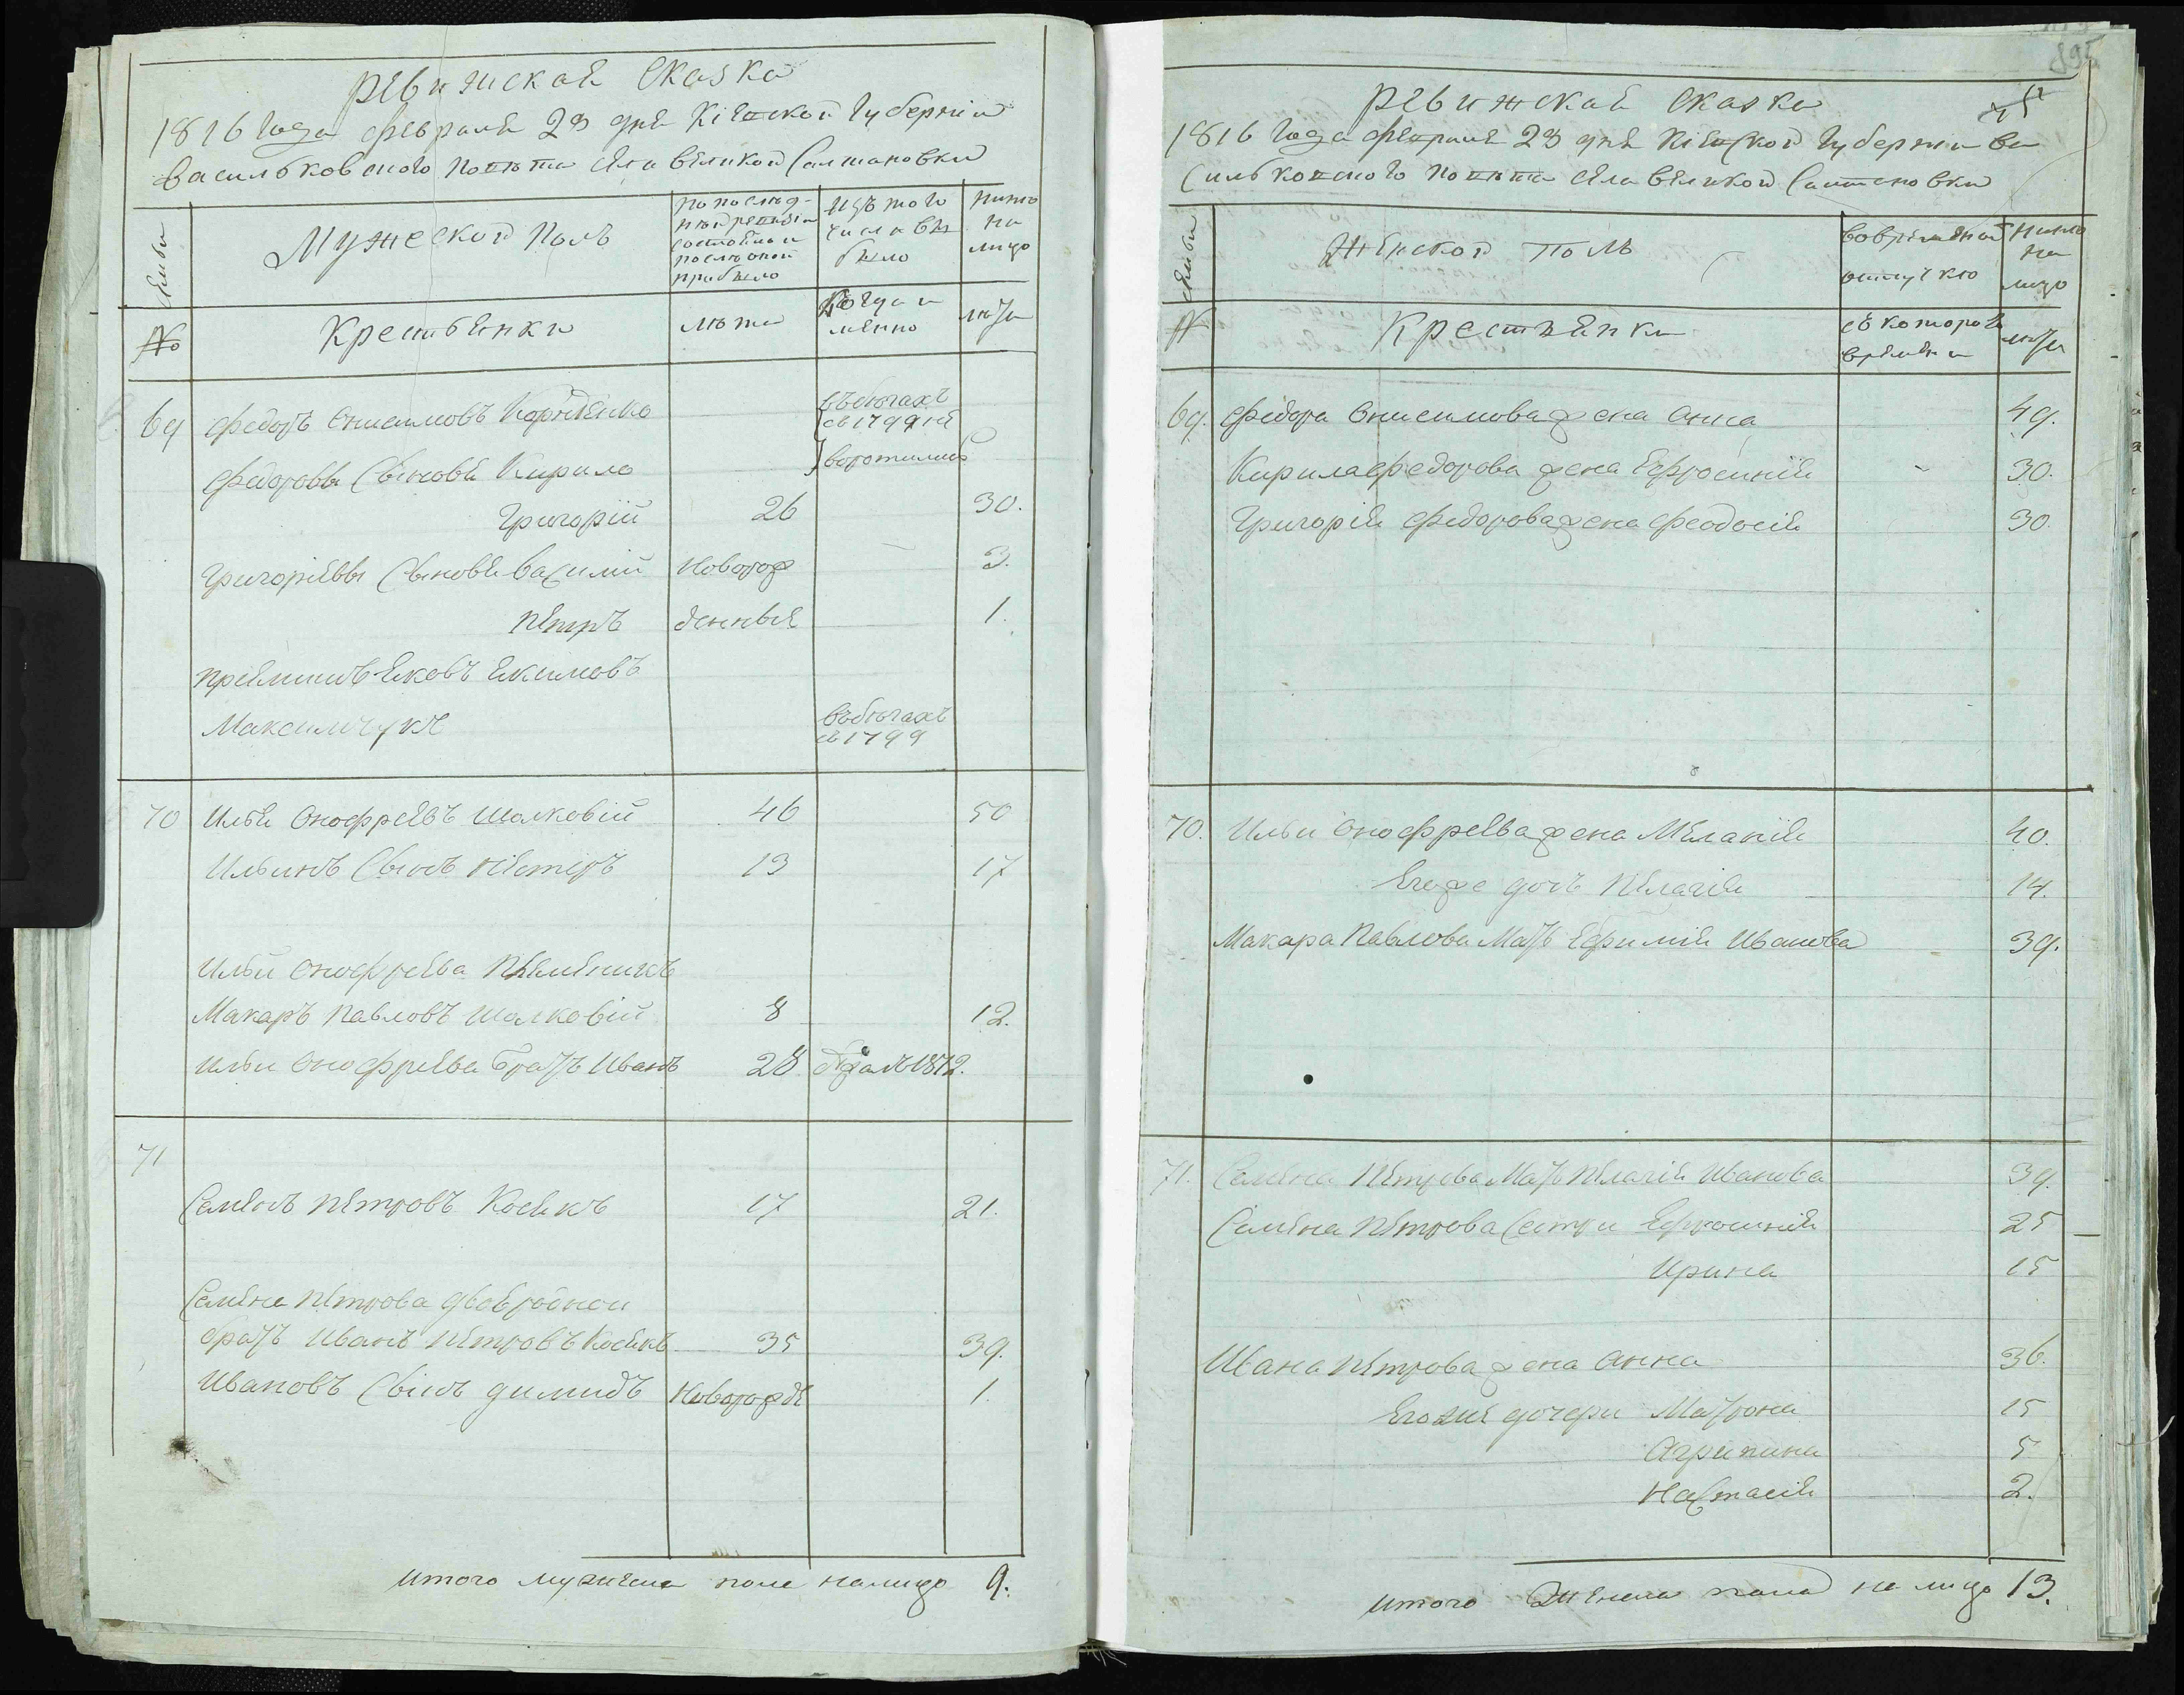 ревижская сказка
1816 года февраля 23 дня Кіевской губерніи
васильковского повѣта села великой Салтановки
семьи
Мужеской полъ
по послѣд-
ней ревизіи
состояло и
после оной
прибыло
Изъ того
числа вы
было
ныне
на
лицо
№
Крестьянки
лѣта
Когда и
мянно
лѣта
69 Федоръ Онисимовъ
въбегахъ
съ 1799 го
Федоровы Сыновья Кирило
воротились
Григорій 26 30.
Григорьевы Сыновья Василій Новорож 3.
Петръ денные 1.
Яковъ Екимовъ
Максимчукъ
въбегахъ
съ 1799
70 Илья Онофреевъ Шолковій 46 50
Ильинъ Сынъ Петеръ 13 17
Ильи Онофреева Племеникъ
Макаръ Павловъ Шолковій 8 12.
Ильи Онофреева братъ Иванъ 28 1812.
71
Семенъ Петровъ Косякъ 17 21.
Семена Петрова двоюройной
братъ Иванъ Петровъ Косякъ 35 39.
Ивановъ Сынъ димидъ Новорожде 1.
Итого мужеска пола налицо 9.
895
ревижская сказка
1816 года февраля 23 дня Кіевской губерніи ва
сильковского повѣта села великой Салтановки
семьи
Женской полъ
вовременной
отлучкѣ
ныне
на
лицо
№
Крестьянки
съ которого
времени
лѣта
69. Федора Онисимова жена Анна 49.
Кирила Федорова жена Ефросинія 30.
Григорія Федорова жена Феодосія 30.
70. Ильи Онофреева жена Меланія 40.
Егоже дочь Пелагія 14.
Макара Павлова Мать Ефимія Иванова 39.
71. Семена Петрова Мать Пелагія Иванова 39.
Семена Петрова Сестри Ефросинія 25
Ирина 15
Ивана Петрова жена Анна 36.
Егоже дочери Матрона 15
Агрипина 5
Настасія 2.
Итого Женска пола на лицо 13.